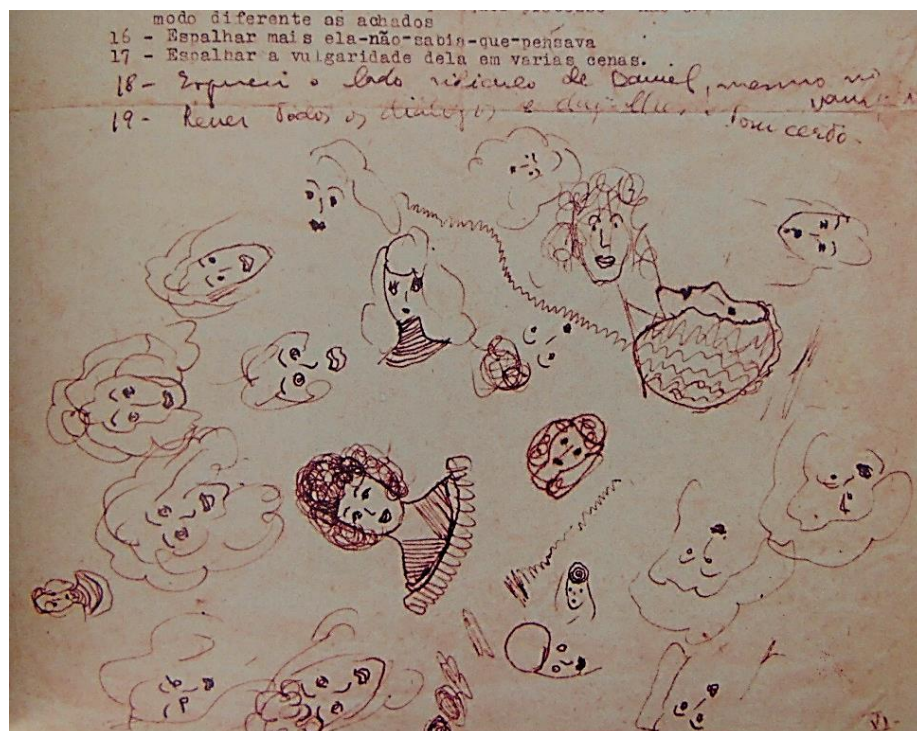 modo diferente os achados
16 - Espalhar mais ela-não-sabia-que-pensava
17 - Espalhar a vulgaridade dela em varias cenas.
18 - o lado ridiculo de Daniel, mesmo
19 - Rever todos os dialogos e tom certo.
VI